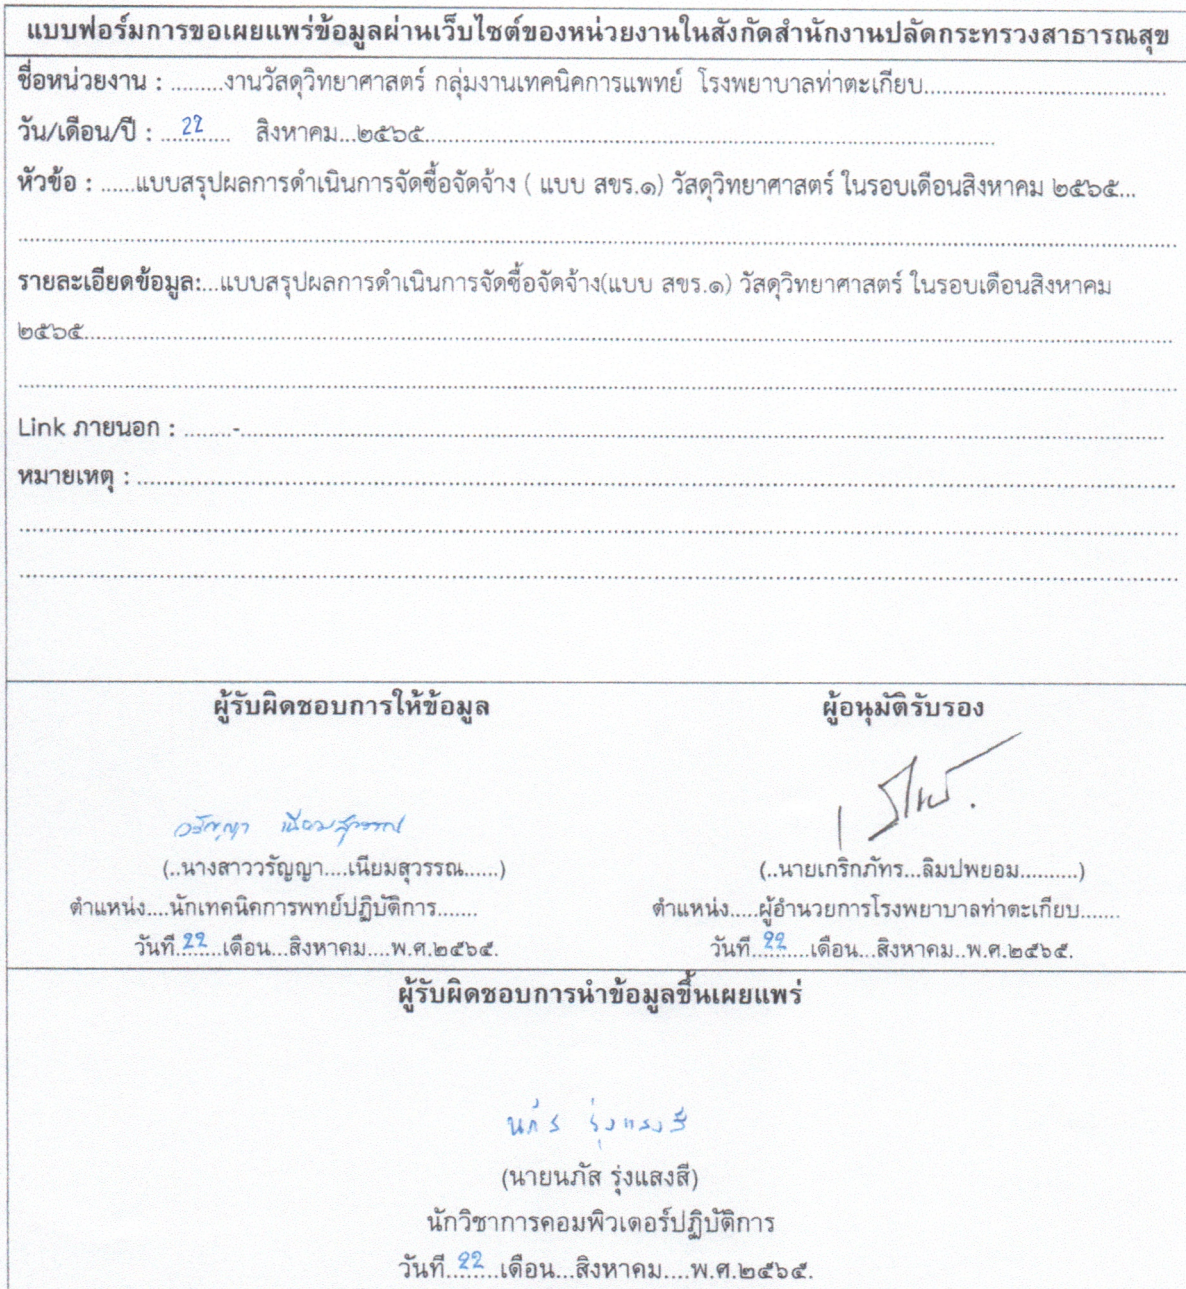 แบบฟอร์มการขอเผยแพร่ข้อมูลผ่านเว็บไซต์ของหน่วยงานในสังกัดสำนักงานปลัดกระทรวงสาธารณสุข
ชื่อหน่วยงาน : .........งานวัสดุวิทยาศาสตร์ กลุ่มงานเทคนิคการแพทย์ โรงพยาบาลท่าตะเกียบ.......................................
วัน/เดือน/ปี : ....22..... สิงหาคม...๒๕๖๕...........................................................................................
หัวข้อ : ......แบบสรุปผลการดำเนินการจัดซื้อจัดจ้าง ( แบบ สขร.๑) วัสดุวิทยาศาสตร์ ในรอบเดือนสิงหาคม ๒๕๖๕...
รายละเอียดข้อมูล:...แบบสรุปผลการดำเนินการจัดซื้อจัดจ้าง(แบบ สขร.๑) วัสดุวิทยาศาสตร์ ในรอบเดือนสิงหาคม
๒๕๖๕...........................................................................................
Link ภายนอก : ........-...........................................................................................
หมายเหตุ : ...........................................................................................
ผู้รับผิดชอบการให้ข้อมูล ผู้อนุมัติรับรอง
วรัญญา เนียมสุวรรณ
(..นางสาววรัญญา....เนียมสุวรรณ......) (..นายเกริกภัทร...ลิมปพยอม..........)
ตำแหน่ง....นักเทคนิคการพทย์ปฏิบัติการ....... ตำแหน่ง.....ผู้อำนวยการโรงพยาบาลท่าตะเกียบ.......
วันที่..22.....เดือน...สิงหาคม....พ.ศ.๒๕๖๕. วันที่...22.......เดือน...สิงหาคม..พ.ศ.๒๕๖๕.
ผู้รับผิดชอบการนำข้อมูลขึ้นเผยแพร่
นภัส รุ่งแสงสี
(นายนภัส รุ่งแสงสี)
นักวิชาการคอมพิวเตอร์ปฏิบัติการ
วันที่..22.....เดือน...สิงหาคม....พ.ศ.๒๕๖๕.